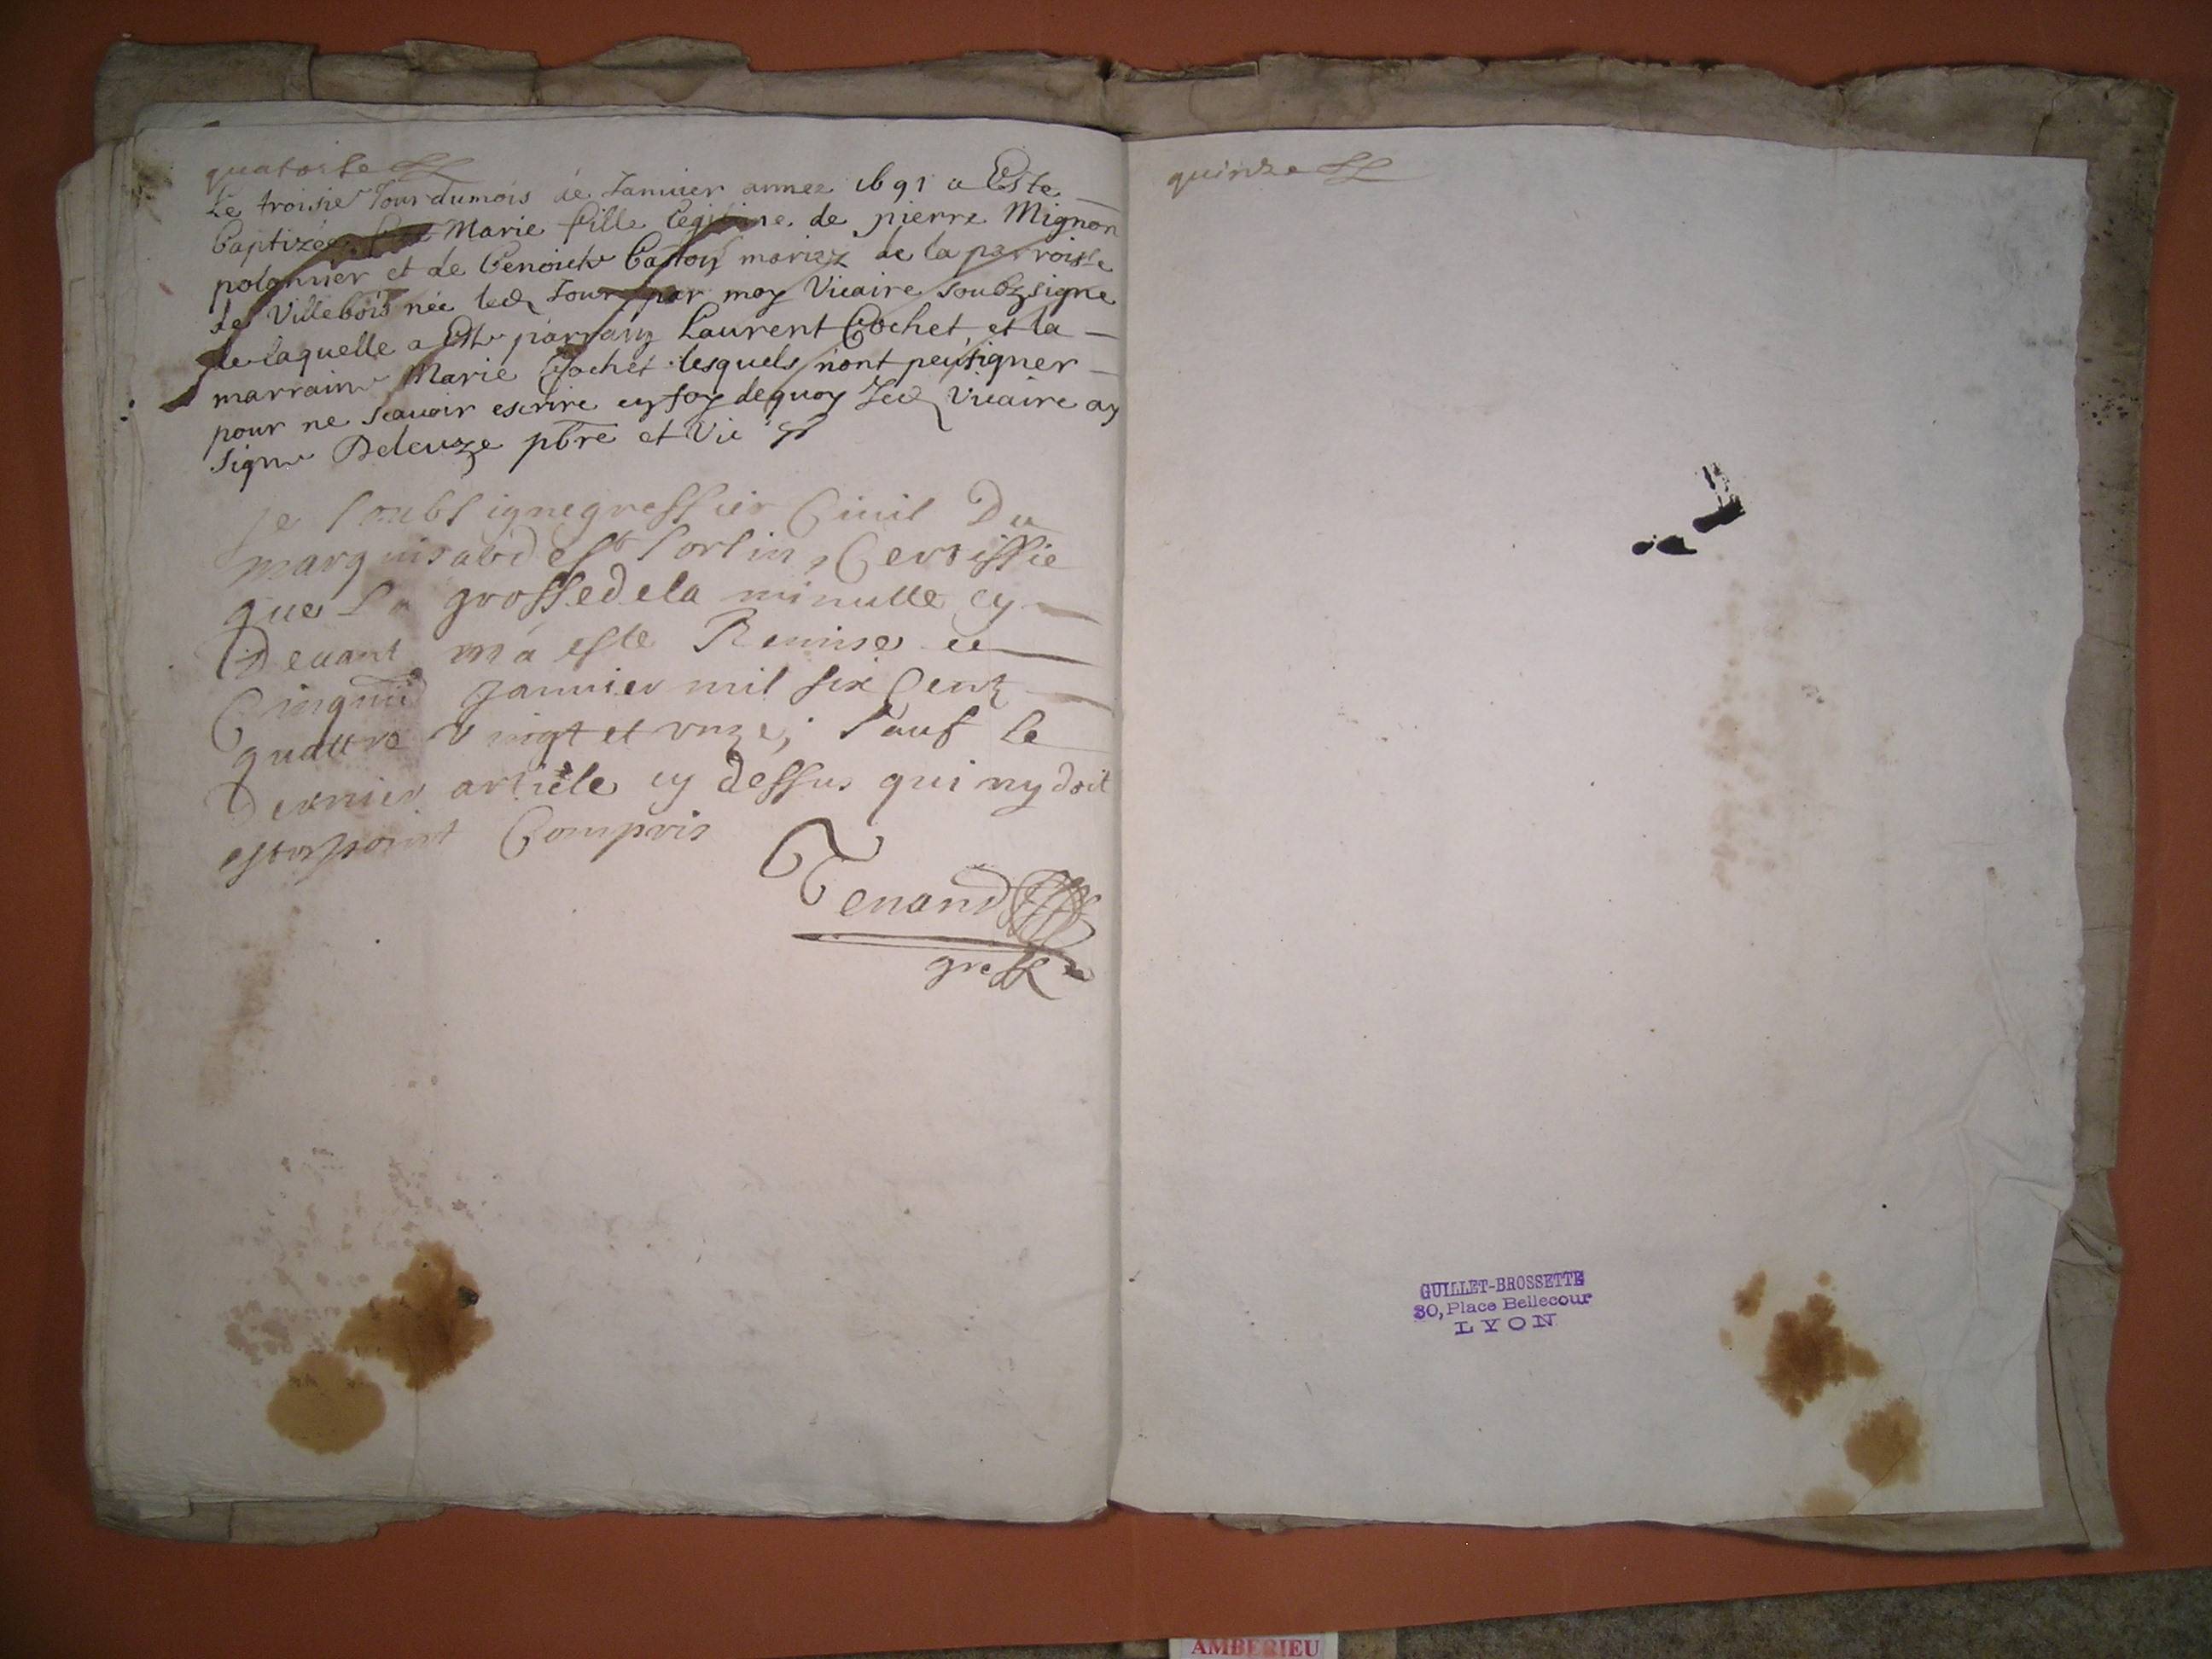 quatorse
Le troisie Jour du mois de Januier année 1691 a Este
baptizée Marie fille legitime de pierre Mignon
polonnier et de benoicte baston mariez de la parroisse
de Villebois née led Jour par moy Vicaire soubzsigne
de laquelle a Este parrain Laurent Cochet, et la
marraine Marie Cochet lesquels n'ont peu signer
pour ne scauoir escrire en foy de quoy Jed Vicaire ay
signe Deleuze pbre et Vic
Je soubsigne greffier Ciuil Du
marquisat de St Sorlin, Certiffie
que La grosse de la minutte cy
Deuant m'a esté Remise ce
Cinquie Januier mil six Cent
quattre Vingt et vnze, sauf le
Dernier article cy dessus qui ny doit
estre point Compris
Tenand
greff
quinze
GUILLET-BROSSETTE
30, Place Bellecour
LYON
AMBERIEU